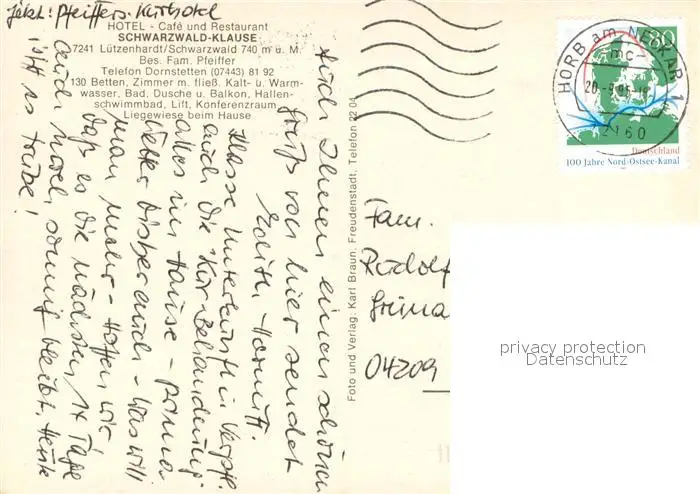 jetzt: Pfeiffers-Kurhotel
HOTEL - Café und Restaurant
SCHWARZWALD-KLAUSE
7241 Lützenhardt/Schwarzwald 740 m ü. M.
Bes. Fam. Pfeiffer
Telefon Dornstetten (07443) 81 92
130 Betten, Zimmer m. fließ. Kalt- u. Warm-
wasser, Bad, Dusche u. Balkon, Hallen-
schwimmbad, Lift, Konferenzraum,
Liegewiese beim Hause
Auch Ihnen einen schönen
Gruß von hier sendet
Edith
Klasse Unterkunft u. Verpfl.
auch die Kur-Behandlung
alles im Hause - prima
Wetter bisher auch - was will
man mehr - Hoffen wir
daß es die nächsten 14 Tage
auch noch sonnig bleibt. Heute
ist es trübe!
Foto und Verlag: Karl Braun, Freudenstadt, Telefon 22 04
HORB am NECKAR 1
mc
20.-9.95-18
72160
80
Deutschland
100 Jahre Nord-Ostsee-Kanal
Fam.
Rudolf
04209
privacy protection
Datenschutz